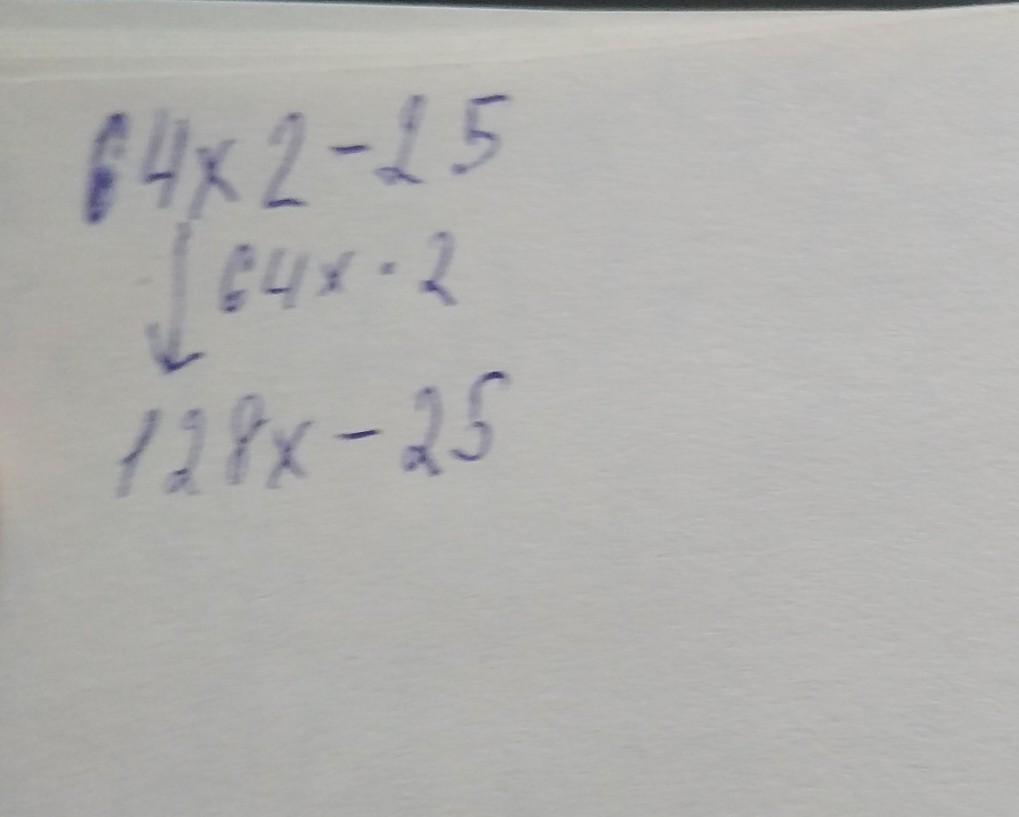 64x2-25
64x·2
128x-25